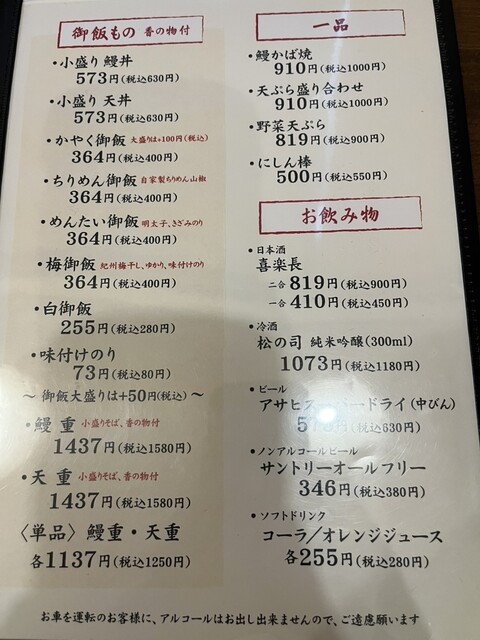 御飯もの 香の物付
・小盛り 鰻丼
573円(税込630円)
・小盛り 天丼
573円(税込630円)
・かやく御飯 大盛りは+100円(税込)
364円(税込400円)
・ちりめん御飯 自家製ちりめん山椒
364円(税込400円)
・めんたい御飯 明太子、きざみのり
364円(税込400円)
・梅御飯 紀州梅干し、ゆかり、味付けのり
364円(税込400円)
・白御飯
255円(税込280円)
・味付けのり
73円(税込80円)
〜 御飯大盛りは+50円(税込) 〜
・鰻 重 小盛りそば、香の物付
1437円(税込1580円)
・天 重 小盛りそば、香の物付
1437円(税込1580円)
〈単品〉鰻重・天重
各1137円(税込1250円)
一品
・鰻かば焼
910円(税込1000円)
・天ぷら盛り合わせ
910円(税込1000円)
・野菜天ぷら
819円(税込900円)
・にしん棒
500円(税込550円)
お飲み物
・日本酒
喜楽長
二合 819円(税込900円)
一合 410円(税込450円)
・冷酒
松の司 純米吟醸(300ml)
1073円(税込1180円)
・ビール
アサヒスーパードライ(中びん)
573円(税込630円)
・ノンアルコールビール
サントリーオールフリー
346円(税込380円)
・ソフトドリンク
コーラ/オレンジジュース
各255円(税込280円)
お車を運転のお客様に、アルコールはお出し出来ませんので、ご遠慮願います